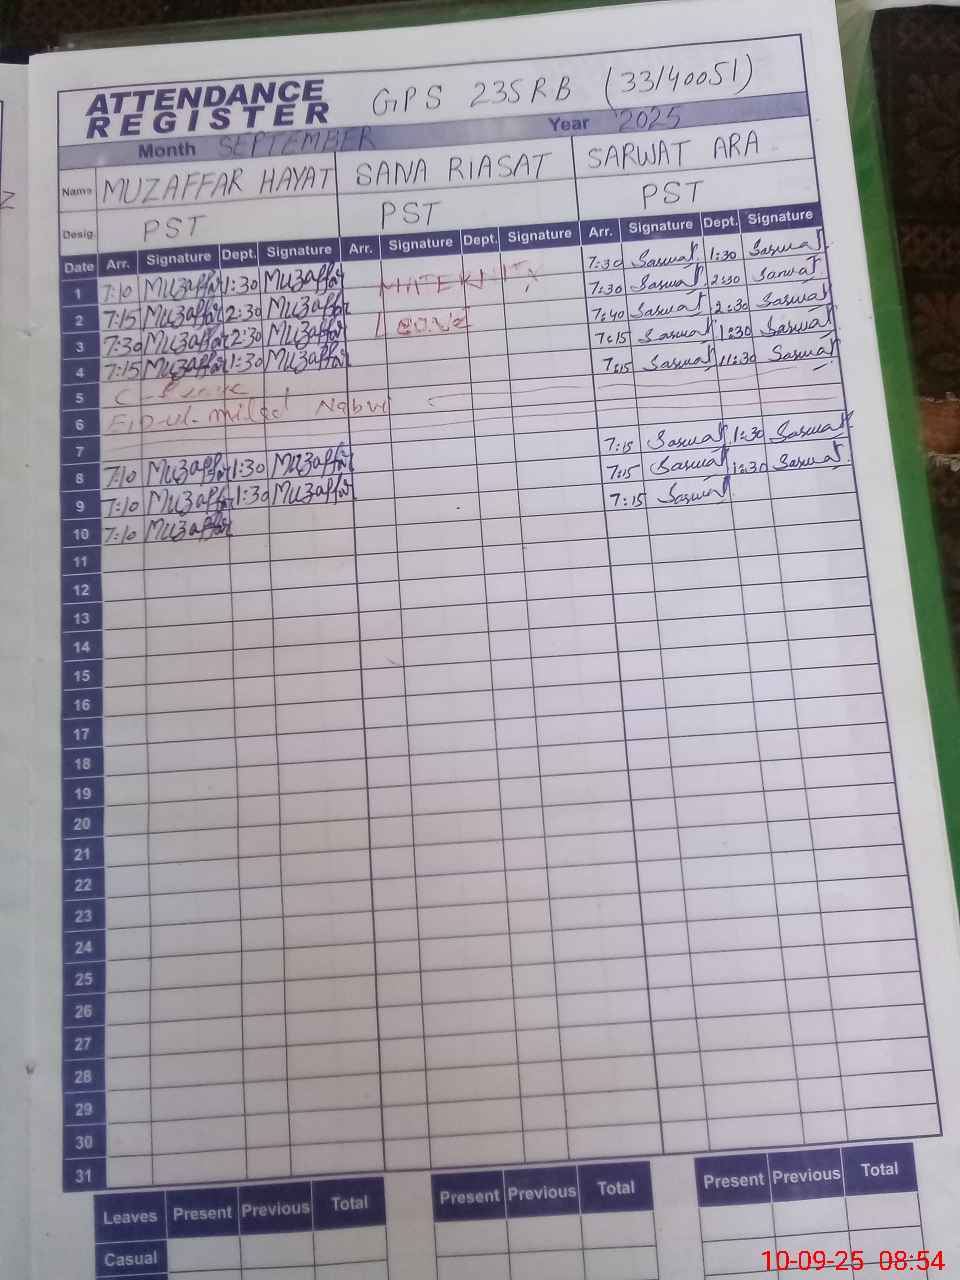 ATTENDANCE REGISTER GPS 235RB (33/40051)
Month SEPTEMBER Year 2025
Name MUZAFFAR HAYAT SANA RIASAT SARWAT ARA
Desig. PST PST PST
Date Arr. Signature Dept. Signature Arr. Signature Dept. Signature Arr. Signature Dept. Signature
1 7:10 Muzaffar 1:30 Muzaffar 7:30 Sarwat 1:30 Sarwat
2 7:15 Muzaffar 2:30 Muzaffar Leave 7:30 Sarwat 2:30 Sarwat
3 7:30 Muzaffar 2:30 Muzaffar 7:40 Sarwat 2:30 Sarwat
4 7:15 Muzaffar 1:30 Muzaffar 7:15 Sarwat 1:30 Sarwat
5 7:15 Sarwat 11:30 Sarwat
6 Eid-ul-milad Nabvi
7
8 7:10 Muzaffar 1:30 Muzaffar 7:15 Sarwat 1:30 Sarwat
9 7:10 Muzaffar 1:30 Muzaffar 7:15 Sarwat 1:30 Sarwat
10 7:10 Muzaffar 7:15 Sarwat
11
12
13
14
15
16
17
18
19
20
21
22
23
24
25
26
27
28
29
30
31
Leaves Present Previous Total Present Previous Total Present Previous Total
Casual
10-09-25 08:54